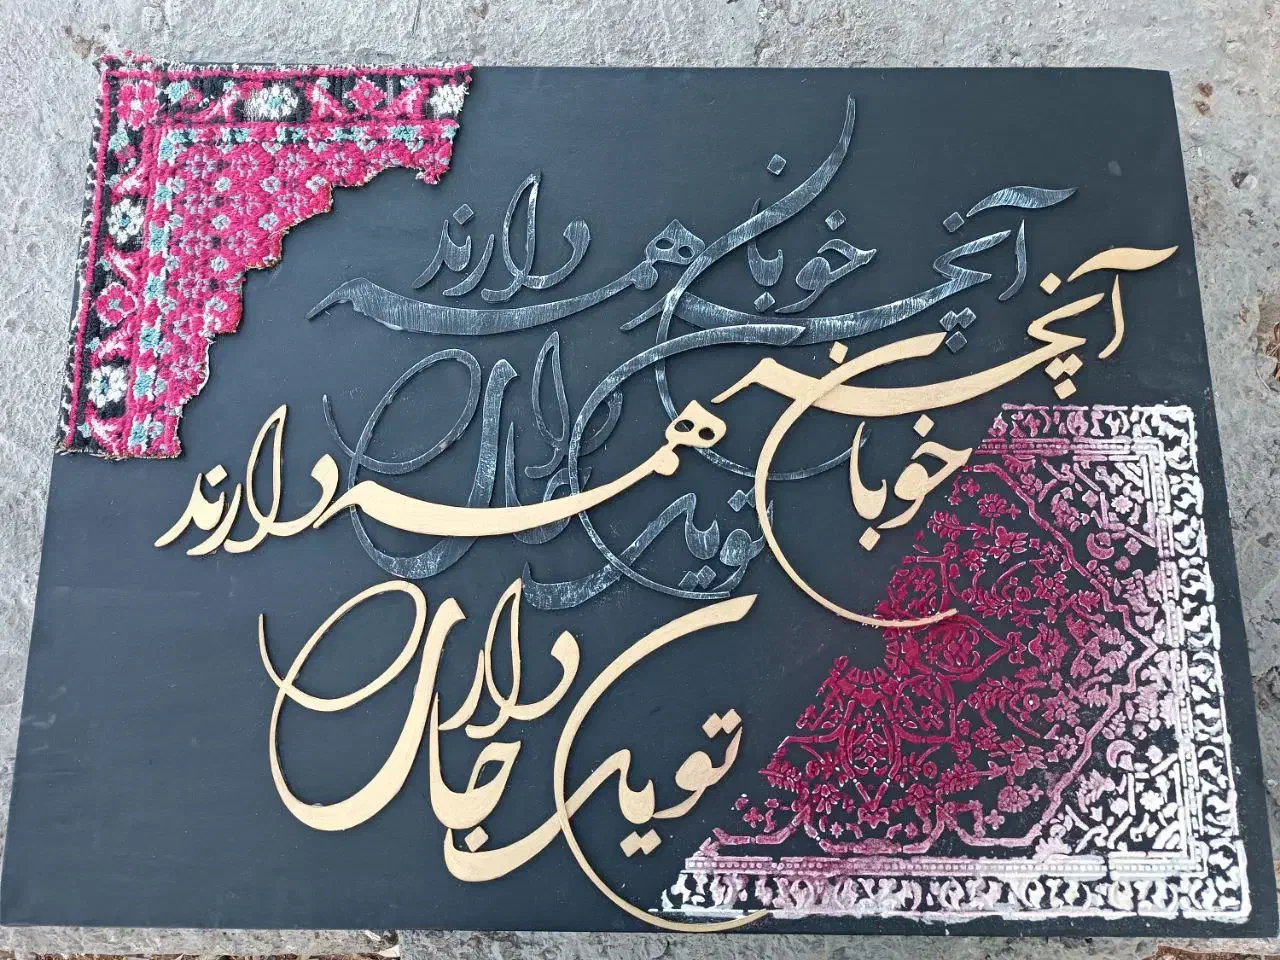 آنچه خوبان همه دارند
تو یک جا داری
آنچه خوبان همه دارند
تو یک جا داری